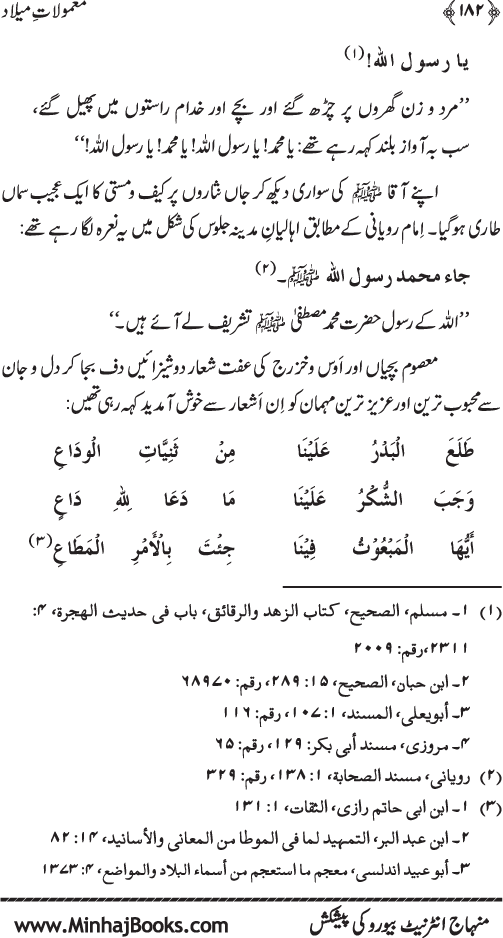 معمولاتِ میلاد ﴿۱۸۲﴾
یا رسول الله!(۱)
’’مرد و زن گھروں پر چڑھ گئے اور بچے اور خدام راستوں میں پھیل گئے،
سب بہ آواز بلند کہہ رہے تھے: یا محمد! یا رسول اللہ! یا محمد! یا رسول اللہ!‘‘
اپنے آقا ﷺ کی سواری دیکھ کر جاں نثاروں پر کیف و مستی کا ایک عجیب سماں
طاری ہوگیا۔ اِمام رویانی کے مطابق اہالیانِ مدینہ جلوس کی شکل میں یہ نعرہ لگا رہے تھے:
جاء محمد رسول الله ﷺ۔(۲)
’’اللہ کے رسول حضرت محمد مصطفیٰ ﷺ تشریف لے آئے ہیں۔‘‘
معصوم بچیاں اور اَوس و خزرج کی عفت شعار دوشیزائیں دف بجا کر دل و جان
سے محبوب ترین اور عزیز ترین مہمان کو اِن اَشعار سے خوش آمدید کہہ رہی تھیں:
طَلَعَ الْبَدْرُ عَلَيْنَا مِنْ ثَنِيَّاتِ الْودَاعِ
وَجَبَ الشُّكْرُ عَلَيْنَا مَا دَعَا لِلّٰهِ دَاعٍ
أَيُّهَا الْمَبْعُوْثُ فِيْنَا جِئْتَ بِالْأَمْرِ الْمَطَاعِ(۳)
(۱) ۱۔ مسلم، الصحيح، كتاب الزهد والرقائق، باب فى حديث الهجرة، ۴:
۲۳۱۱، رقم: ۲۰۰۹
۲۔ ابن حبان، الصحيح، ۱۵: ۲۸۹، رقم: ۶۸۹۷۰
۳۔ أبويعلى، المسند، ۱: ۱۰۷، رقم: ۱۱۶
۴۔ مروزى، مسند أبى بكر: ۱۲۹، رقم: ۶۵
(۲) رويانى، مسند الصحابة، ۱: ۱۳۸، رقم: ۳۲۹
(۳) ۱۔ ابن ابى حاتم رازى، الثقات، ۱: ۱۳۱
۲۔ ابن عبد البر، التمهيد لما فى الموطا من المعانى والأسانيد، ۱۴: ۸۲
۳۔ أبو عبيد اندلسى، معجم ما استعجم من أسماء البلاد والمواضع، ۴: ۱۳۷۳
منہاج انٹرنیٹ بیورو کی پیشکش www.MinhajBooks.com